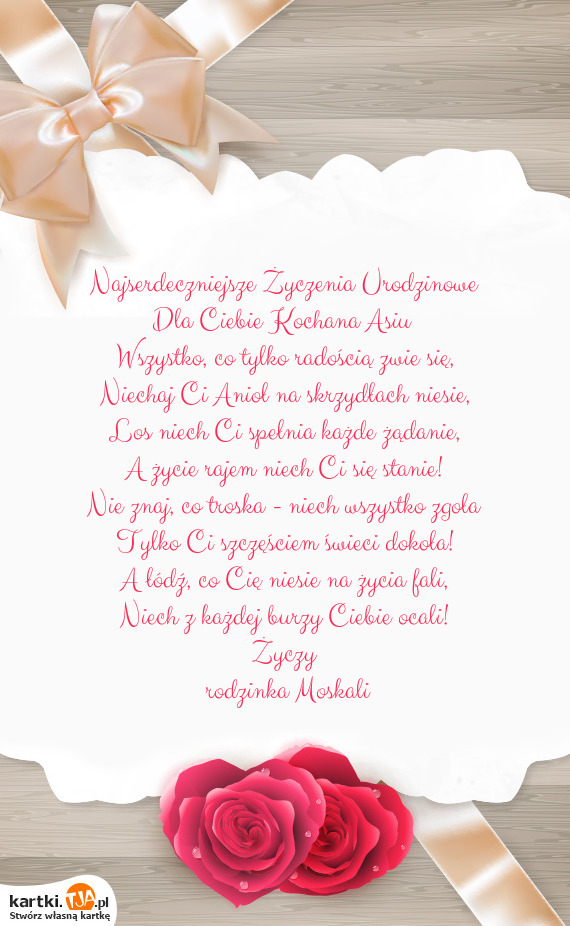 Najserdeczniejsze Życzenia Urodzinowe
Dla Ciebie Kochana Asiu
Wszystko, co tylko radością zwie się,
Niechaj Ci Anioł na skrzydłach niesie,
Los niech Ci spełnia każde żądanie,
A życie rajem niech Ci się stanie!
Nie znaj, co troska - niech wszystko zgoła
Tylko Ci szczęściem świeci dokoła!
A łódź, co Cię niesie na życia fali,
Niech z każdej burzy Ciebie ocali!
Życzy
rodzinka Moskali
kartki.TJA.pl
Stwórz własną kartkę